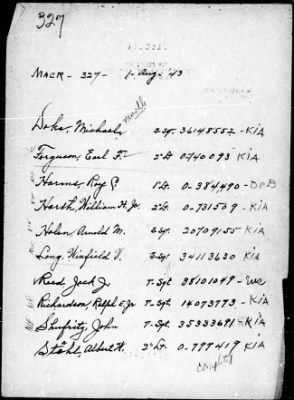 327
MACR - 327 - 1-Aug '43
Doks, Michael S/Sgt. 36148552 - KIA
Ferguson, Earl F. 2nd Lt 0-740093 KIA
Harms, Roy C. 1st Lt. 0-384,490 - DED
Harsh, William H. Jr. 2nd Lt. 0-731539 - KIA
Nolen, Arnold M. S/Sgt. 20709155 KIA
Long, Winfield V. S/Sgt. 34113630 KIA
Reed, Jack J. T-Sgt 38101049 -
Richardson, Ralph E. Jr T-Sgt. 14073773 - KIA
Shufritz, John T-Sgt. 35333691 - KIA
Stahl, Albert W. 2nd Lt. 0-797419 KIA
completed